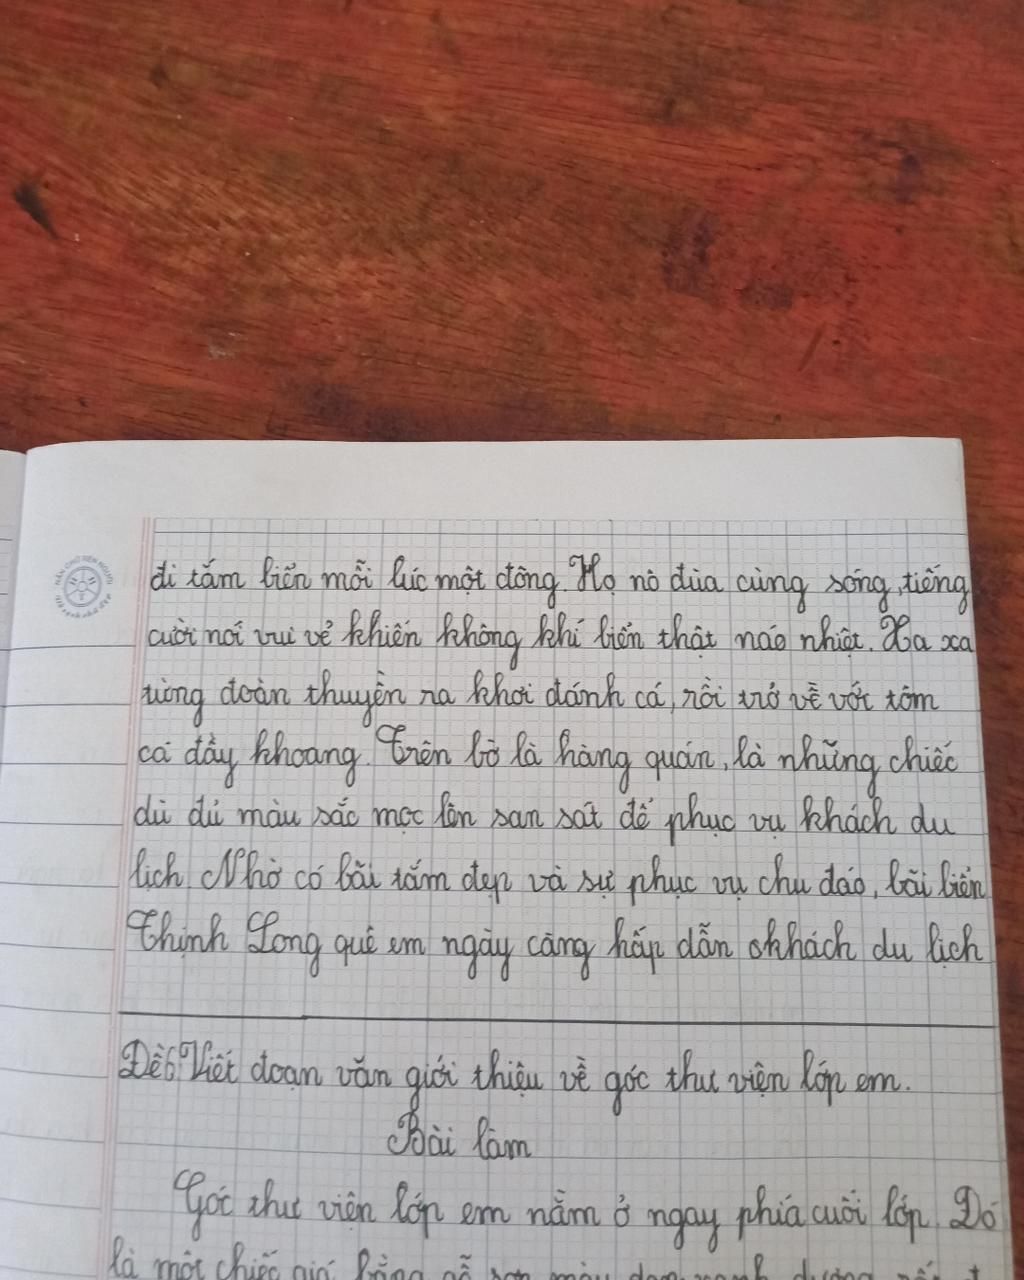 đi tắm biển mỗi lúc một đông. Họ nô đùa cùng sóng, tiếng
cười nói vui vẻ khiến không khí biển thật náo nhiệt. Xa xa
từng đoàn thuyền ra khơi đánh cá, rồi trở về với tôm
cá đầy khoang. Trên bờ là hàng quán, là những chiếc
dù đủ màu sắc mọc lên san sát để phục vụ khách du
lịch. Nhờ có bãi tắm đẹp và sự phục vụ chu đáo, bãi biển
Thịnh Long quê em ngày càng hấp dẫn khách du lịch
Đề6: Viết đoạn văn giới thiệu về góc thư viện lớp em.
Bài làm
Góc thư viện lớp em nằm ở ngay phía cuối lớp. Đó
là một chiếc giá bằng gỗ sơn màu